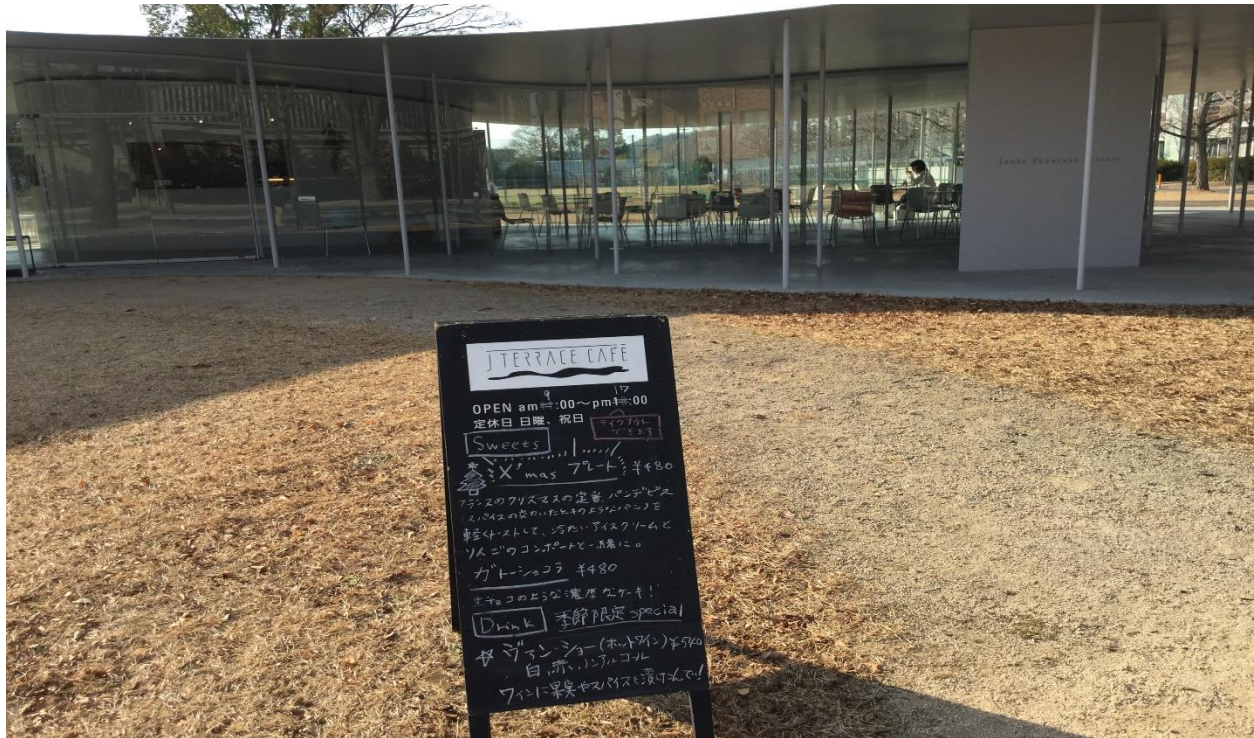 Junko Fukutake Terrace
J TERRACE CAFE
OPEN am 9:00～pm 17:00
定休日 日曜、祝日
テイクアウト
できます
Sweets
X'mas プレート ¥480
フランスのクリスマスの定番、パンデピス
(スパイスの効いたケーキのようなパン)を
軽くトーストして、冷たいアイスクリームと
りんごのコンポートと一緒に。
ガトーショコラ ¥480
生チョコのような濃厚なケーキ!
Drink 季節限定 special
☆ ヴァン・ショー(ホットワイン) ¥540
白、赤、ノンアルコール
ワインに果実やスパイスを漬けこんで!